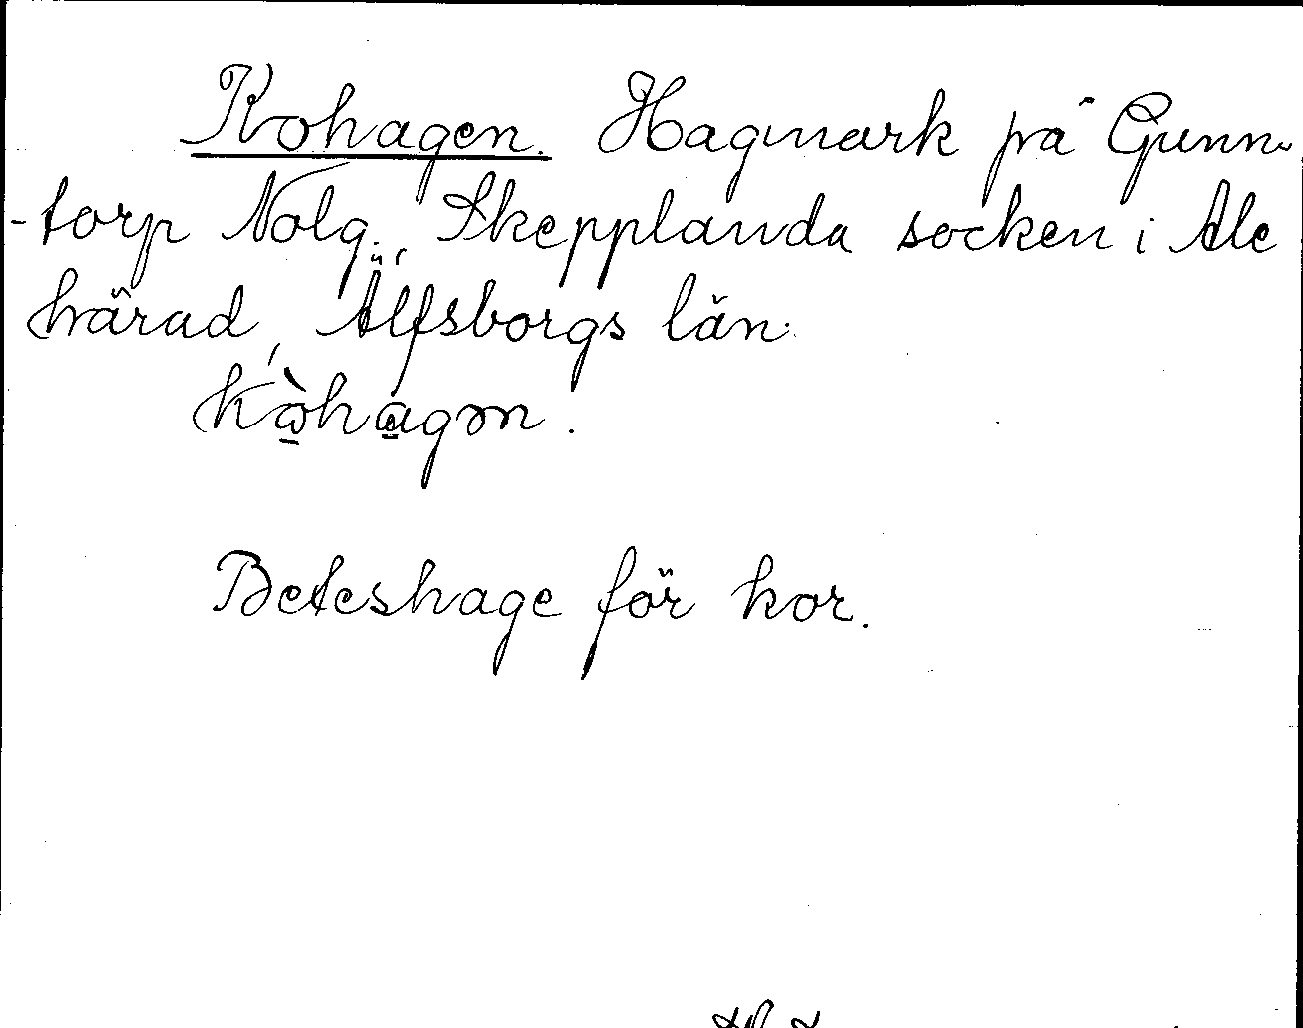 Kohagen. Hagmark på Gunn-
-torp Nolg., Skepplanda socken i Ale
härad, Älfsborgs län.
kòhagən.
Beteshage för kor.